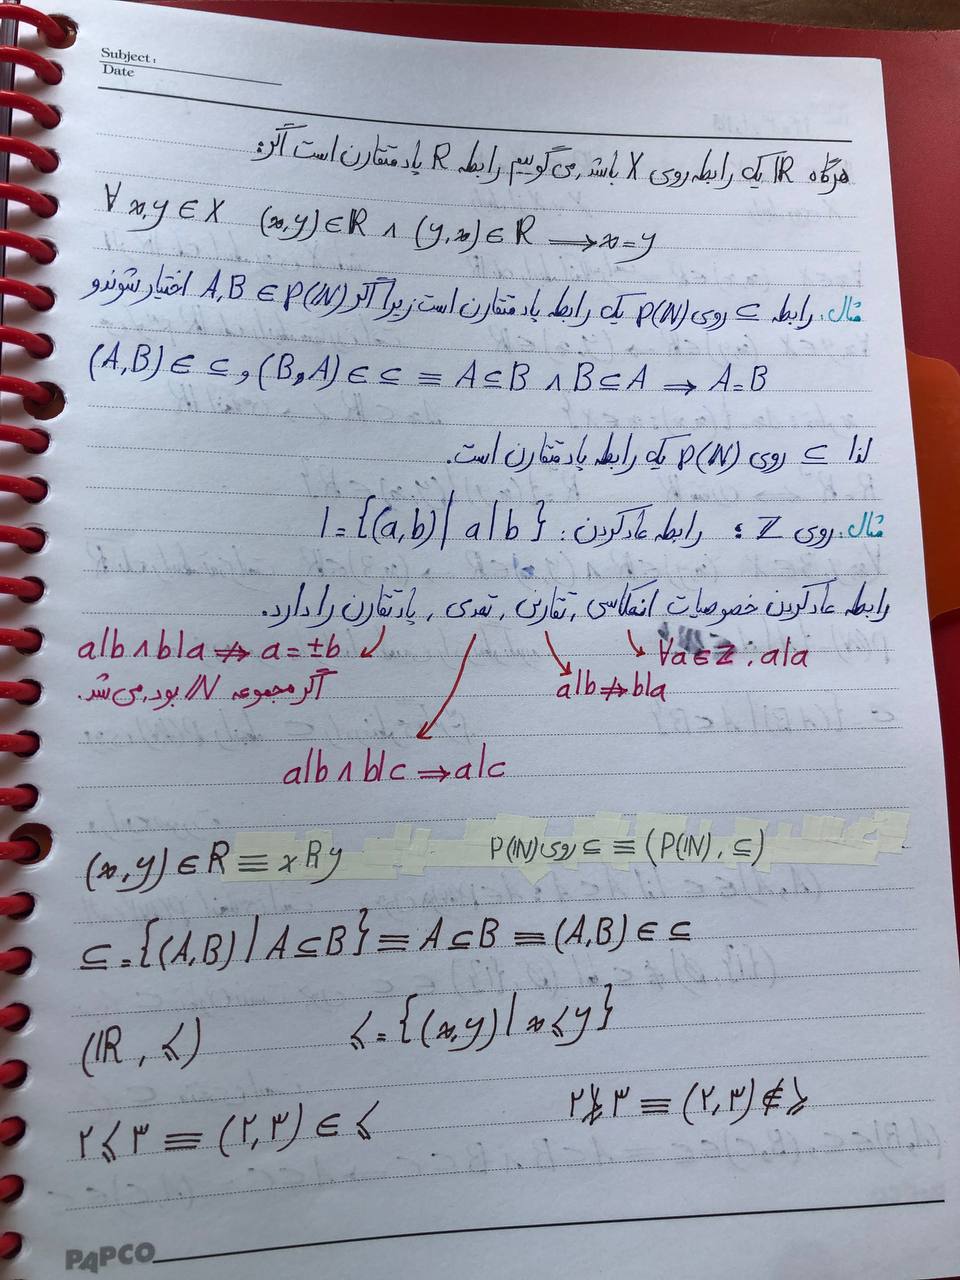 Subject:
Date
هرگاه R یک رابطه روی X باشد، می‌گوییم رابطه R پادمتقارن است اگر:
∀x,y ∈ X (x,y) ∈ R ∧ (y,x) ∈ R ⟶ x=y
مثال. رابطه ⊆ روی P(N) یک رابطه پادمتقارن است زیرا اگر A,B ∈ P(N) اختیار شوند و
(A,B) ∈ ⊆ , (B,A) ∈ ⊆ ≡ A⊆B ∧ B⊆A ⇒ A=B
لذا ⊆ روی P(N) یک رابطه پادمتقارن است.
مثال. روی Z ؛ رابطه عادکردن: | = {(a,b) | a|b}
رابطه عادکردن خصوصیات انعکاسی, تقارن, تعدی, پادتقارن را دارد.
∀a ∈ Z . a|a
a|b ⇏ b|a
a|b ∧ b|a ⇏ a = ±b
اگر مجموعه N بود، می‌شد.
a|b ∧ b|c ⇒ a|c
(x,y) ∈ R ≡ x R y P(N) روی ⊆ ≡ (P(N), ⊆)
⊆ = {(A,B) | A⊆B} ≡ A⊆B ≡ (A,B) ∈ ⊆
(R, ⩽) ⩽ = {(x,y) | x⩽y}
۲⩽۳ ≡ (۲,۳) ∈ ⩽ ۲≱۳ ≡ (۲,۳) ∉ ⩾
PAPCO